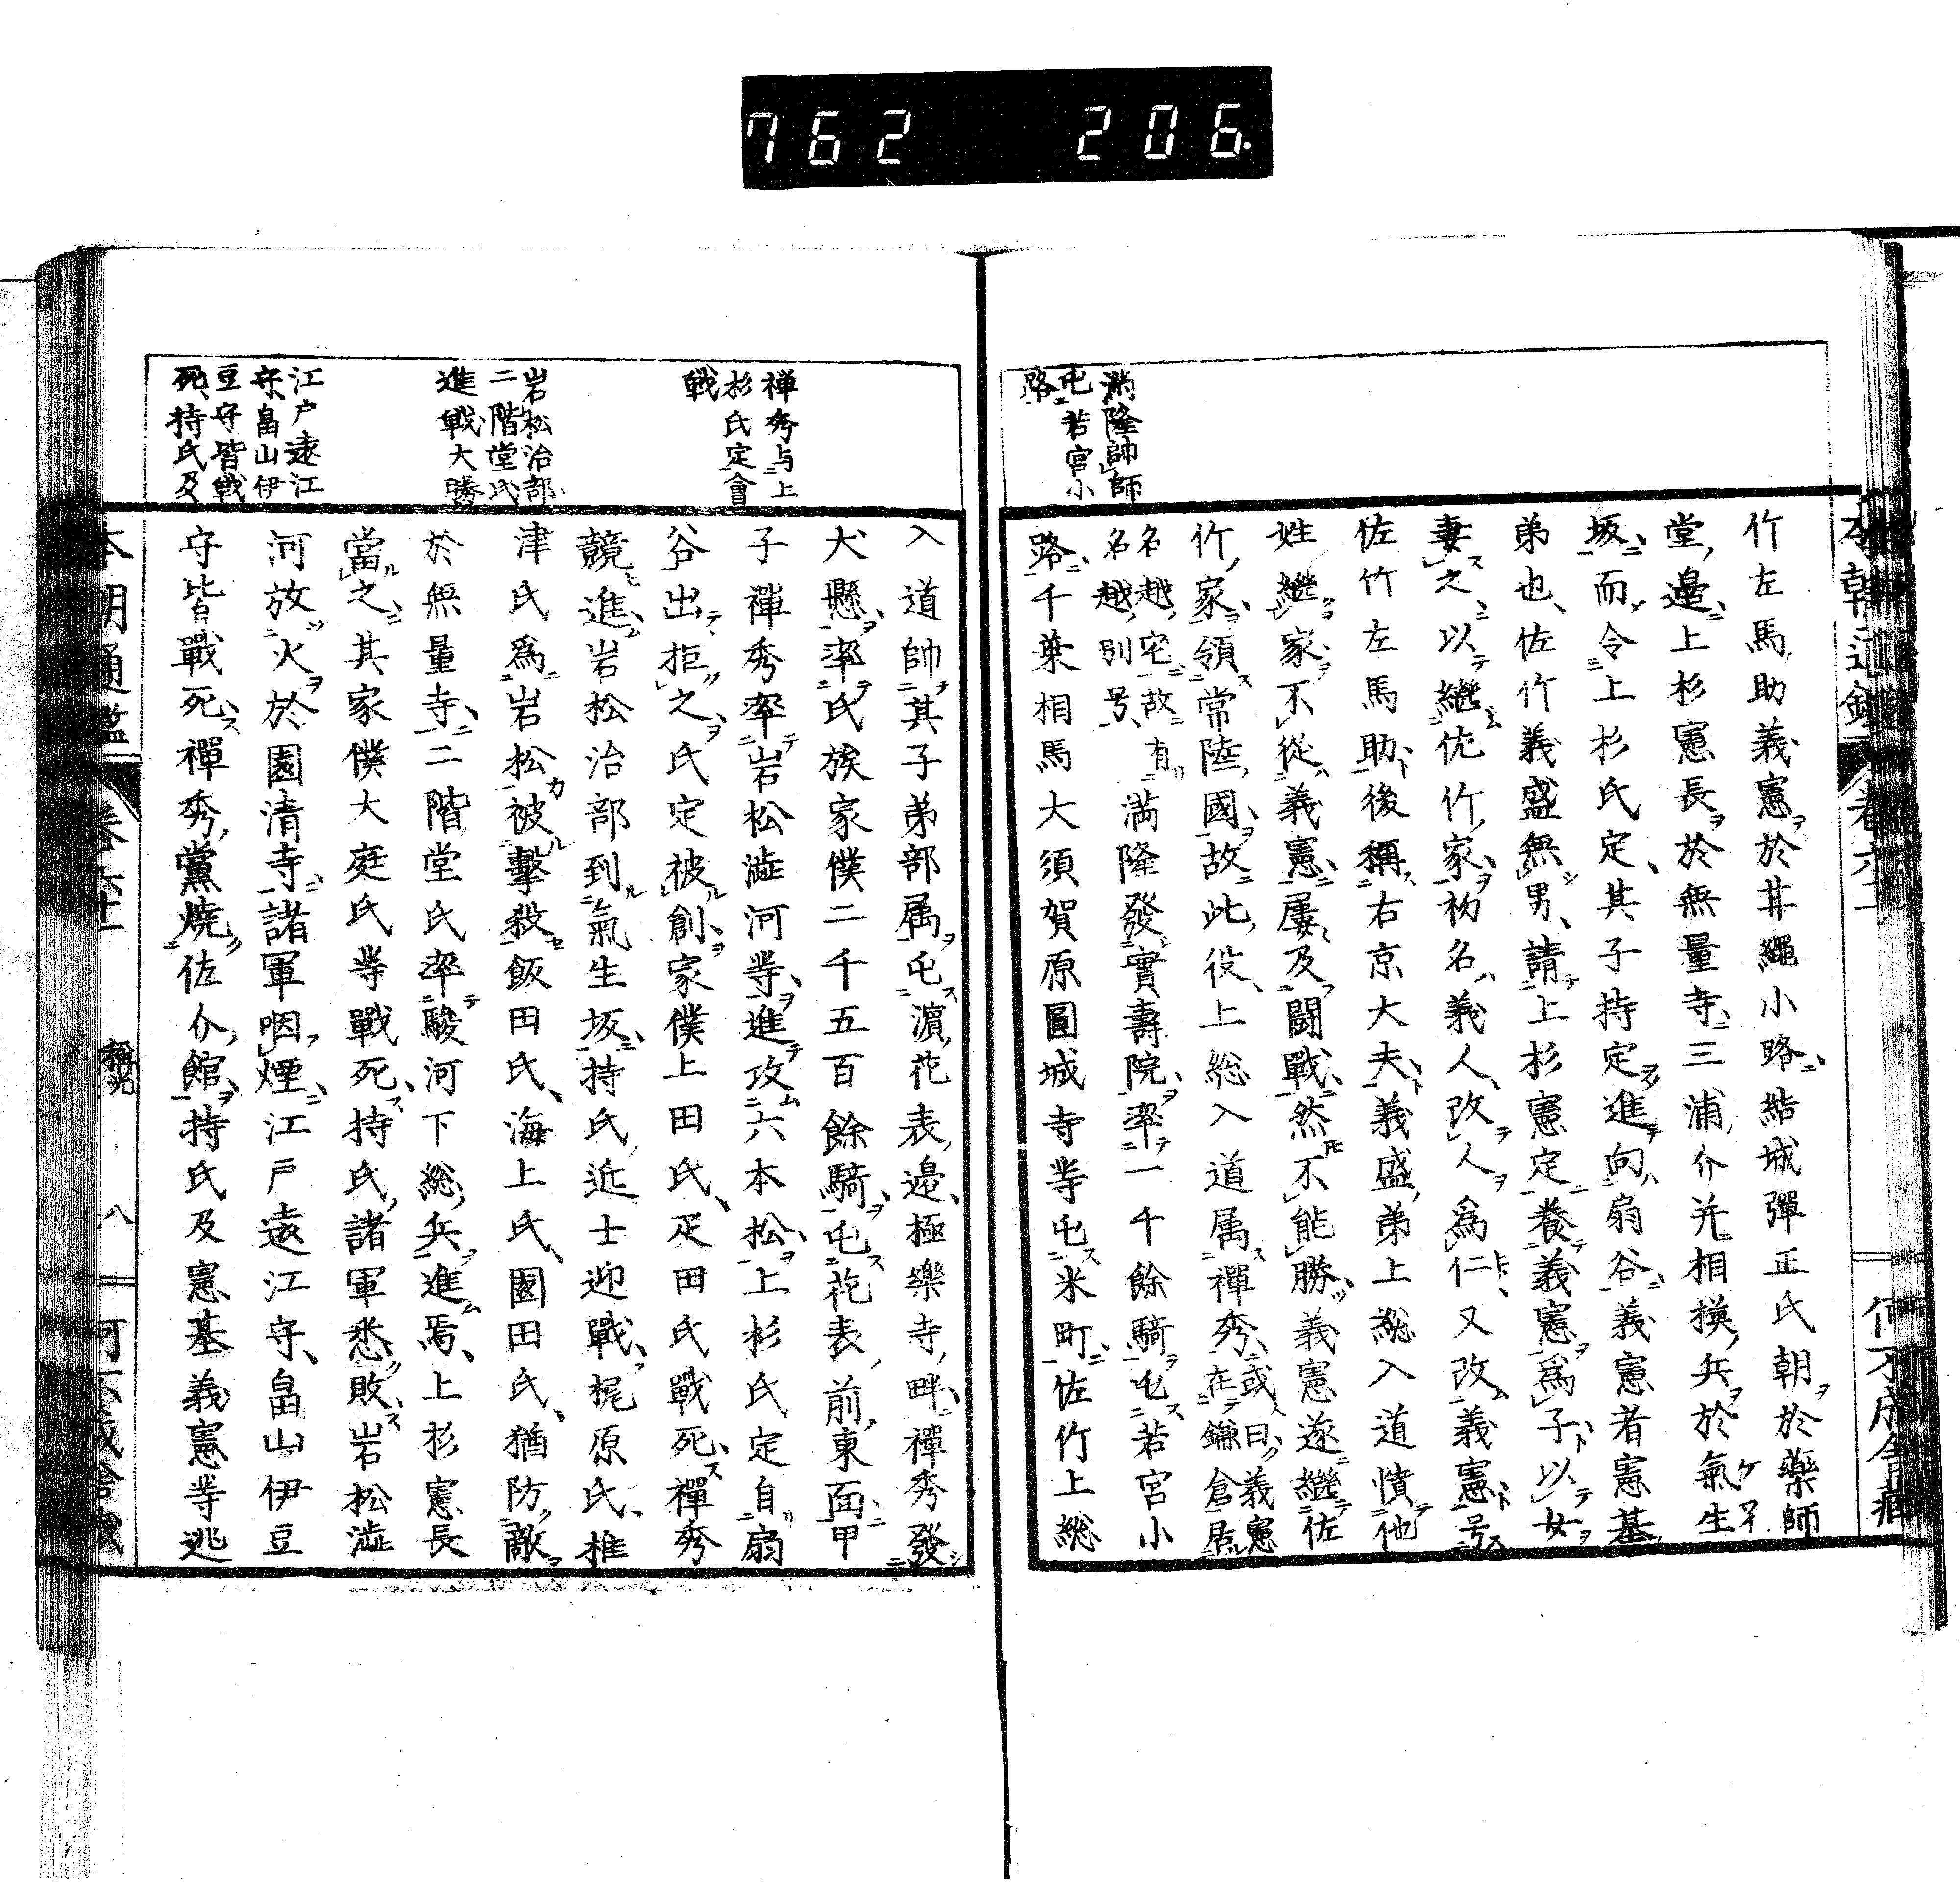 762 206.
満隆帥師
屯若宮小
路
竹左馬助義憲於甘繩小路結城彈正氏朝於藥師
堂邉上杉憲長於無量寺三浦介并相模兵於氣生
坂而令上杉氏定其子持定進向扇谷義憲者憲基
弟也佐竹義盛無男請上杉憲定養義憲爲子以女
妻之以繼佐竹家初名義人改人爲仁又改義憲号
佐竹左馬助後稱右京大夫義盛弟上総入道憤他
姓繼家不從義憲屢及闘戰然不能勝義憲遂繼佐
竹家領常陸國故此役上総入道属禪秀或曰義憲
在鎌倉居
名越宅故有
名越別号
満隆發寳壽院率一千餘騎屯若宮小
路千葉相馬大須賀原圓城寺等屯米町佐竹上総
禅秀与上
杉氏定會
戦
岩松治部
二階堂氏
進戰大勝
江戸遠江
守畠山伊
豆守皆戦
死持氏及
入道帥其子弟部属屯濵花表邉極樂寺畔禪秀發
犬懸率氏族家僕二千五百餘騎屯花表前東面甲
子禪秀率岩松澁河等進攻六本松上杉氏定自扇
谷出拒之氏定被創家僕上田氏疋田氏戰死禪秀
競進岩松治部到氣生坂持氏近士迎戰梶原氏椎
津氏爲岩松被擊殺飯田氏海上氏園田氏猶防敵
於無量寺二階堂氏率駿河下総兵進焉上杉憲長
當之其家僕大庭氏等戰死持氏諸軍悉敗岩松澁
河放火於國清寺諸軍咽煙江戸遠江守畠山伊豆
守皆戰死禪秀黨燒佐介館持氏及憲基義憲等逃
本朝通鑑 卷六十 稱光 八